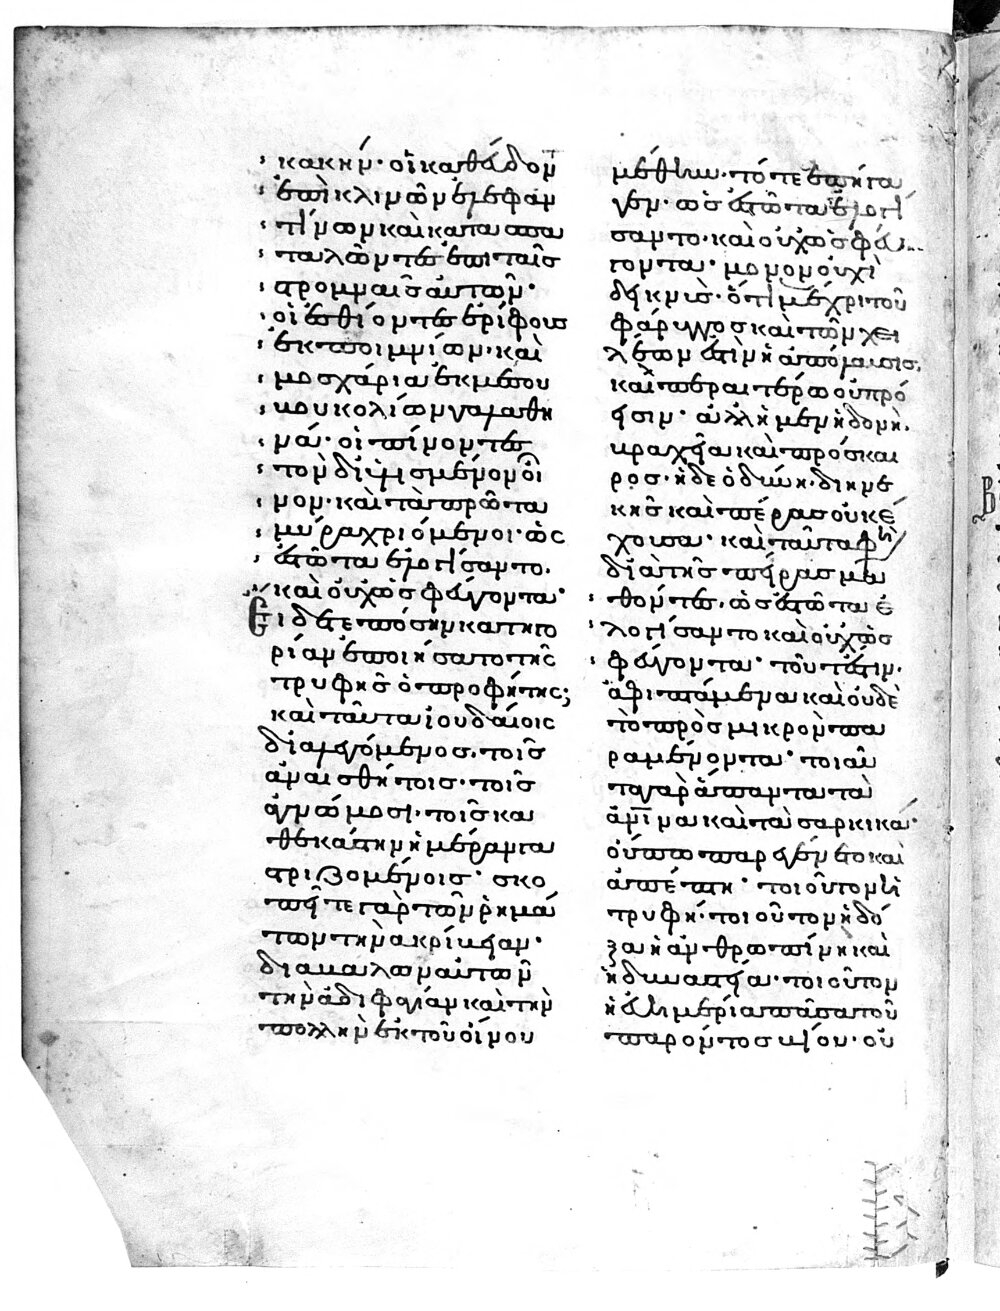 κακὴν· οἱ καθεύδον
ἐπὶ κλινῶν ἐλεφαν
τίνων καὶ κατασπα
ταλῶντες ἐπὶ ταῖς
στρωμναῖς αὐτῶν·
οἱ ἐσθίοντες ἐρίφους
ἐκ ποιμνίων· καὶ
μοσχάρια ἐκ μέσου
βουκολίων γαλαθη
νά· οἱ πίνοντες
τὸν διϋλισμένον οἶ
νον· καὶ τὰ πρῶτα
μύρα χριόμενοι· ὡς
ἑστῶτα ἐλογίσαντο.
καὶ οὐχ ὡς φεύγοντα·
Εἴδετε πόσην κατηγο
ρίαν ἐποιήσατο τῆς
τρυφῆς ὁ προφήτης;
καὶ ταῦτα ἰουδαίοις
διαλεγόμενος. τοῖς
ἀναισθήτοις· τοῖς
ἀγνώμοσι· τοῖς κα
θεκάστην ἡμέραν γα
στριζομένοις· σκο
πεῖτε γὰρ τῶν ῥημά
των τὴν ἀκρίβειαν·
διαβαλὼν αὐτῶν
τὴν ἀδιφαγίαν καὶ τὴν
πολλὴν ἐκ τοῦ οἴνου
μέθην· τότε ἐπήγα
γεν· ὡς ἑστῶτα ἐλογί
σαντο· καὶ οὐχ ὡς φεύ
γοντα· μονονουχὶ
δεικνὺς· ὅτι μέχρι τοῦ
φάρυγγος καὶ τῶν χει
λέων ἐστὶν ἡ ἀπόλαυσις.
καὶ περαιτέρω οὐ πρό
εισιν· ἀλλ' ἡ μὲν ἡδονὴ.
βραχεῖα καὶ πρόσκαι
ρος· ἡ δὲ ὀδύνη· διηνε
κὴς καὶ πέρας οὐκ ἔ
χουσα· καὶ ταῦτα φησὶ
διὰ τῆς πείρας μα
θόντες. ὡς ἑστῶτα ἐ
λογίσαντο καὶ οὐχ ὡς
φεύγοντα· τουτέστιν.
ἀφιπτάμενα καὶ οὐδὲ
τὸ πρὸς μικρὸν πα
ραμένοντα· τοιαῦ
τα γὰρ ἅπαντα τὰ
ἀνινα καὶ τὰ σαρκικά·
οὔπω παρεγένετο καὶ
ἀπέπτη· τοιοῦτον ἡ
τρυφή· τοιοῦτον ἡ δό
ξα ἡ ἀνθρωπίνη καὶ
ἡ δυναστεία· τοιοῦτον
ἡ εὐημερία πᾶσα τοῦ
παρόντος βίου· οὐ